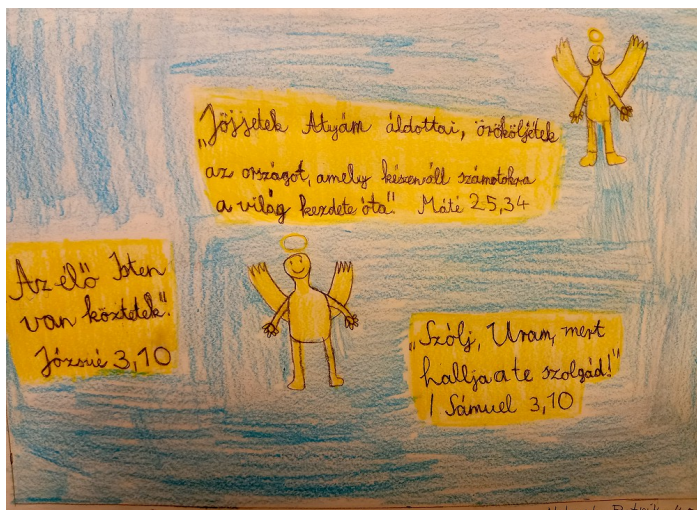 „Jöjjetek Atyám áldottai, örököljétek
az országot, amely készen áll számotokra
a világ kezdete óta". Máté 25,34
Az élő Isten
van köztetek".
Józsué 3,10
„Szólj, Uram, mert
hallja a te szolgád!"
I Sámuel 3,10